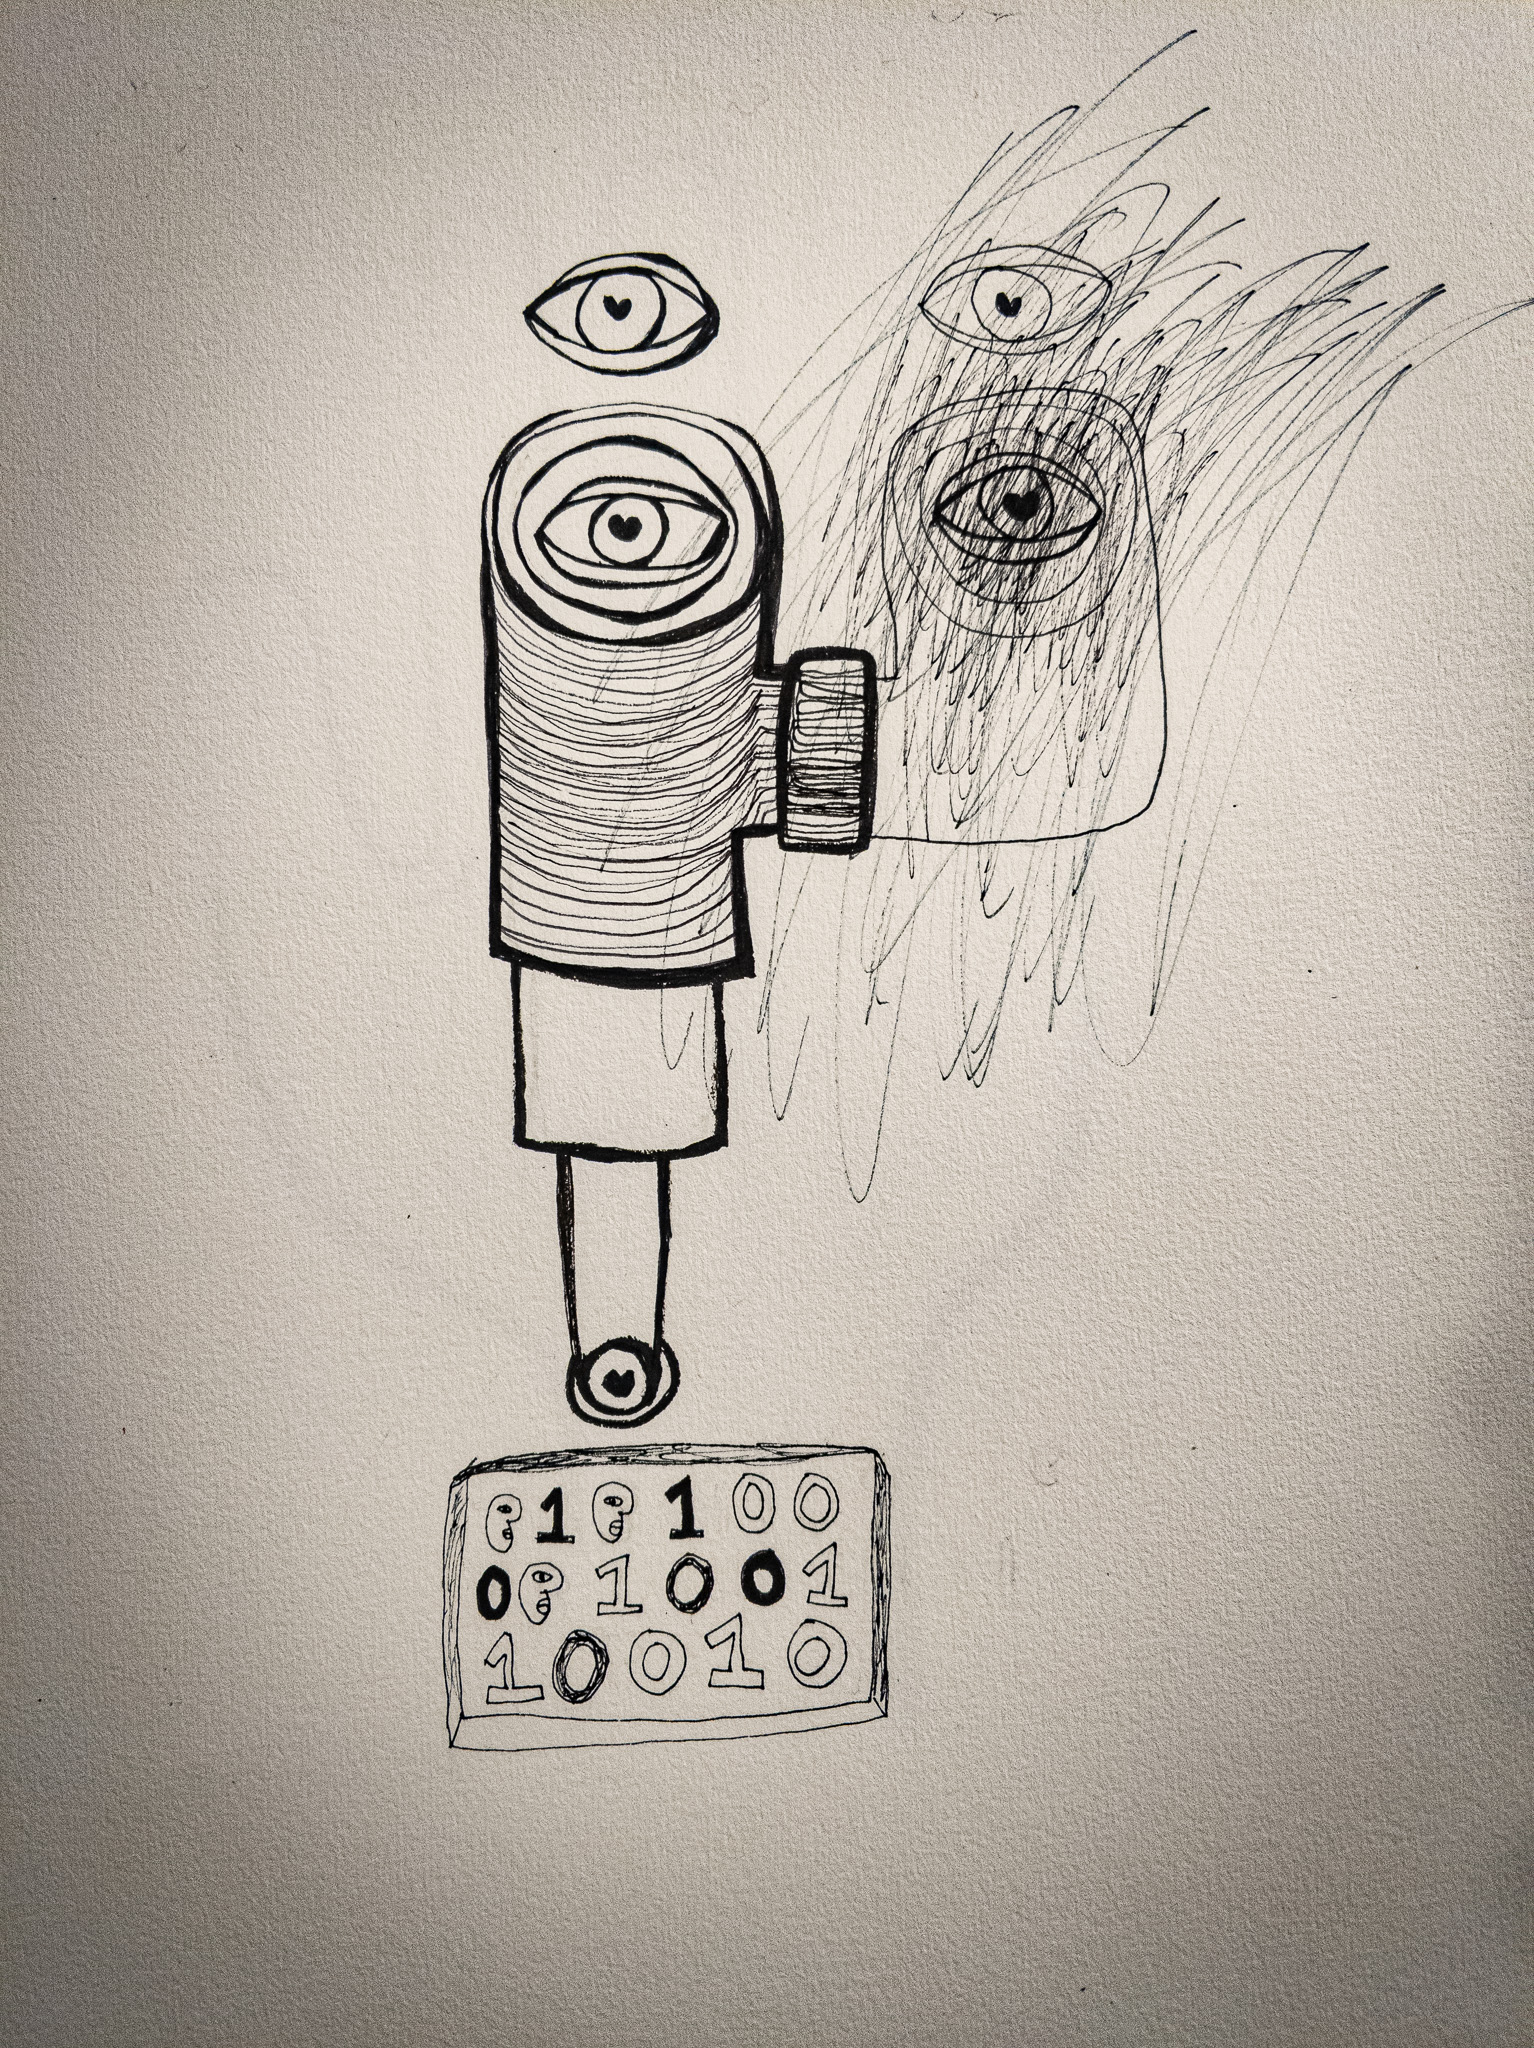 1 1 0 0
0 1 0 0 1
1 0 0 1 0